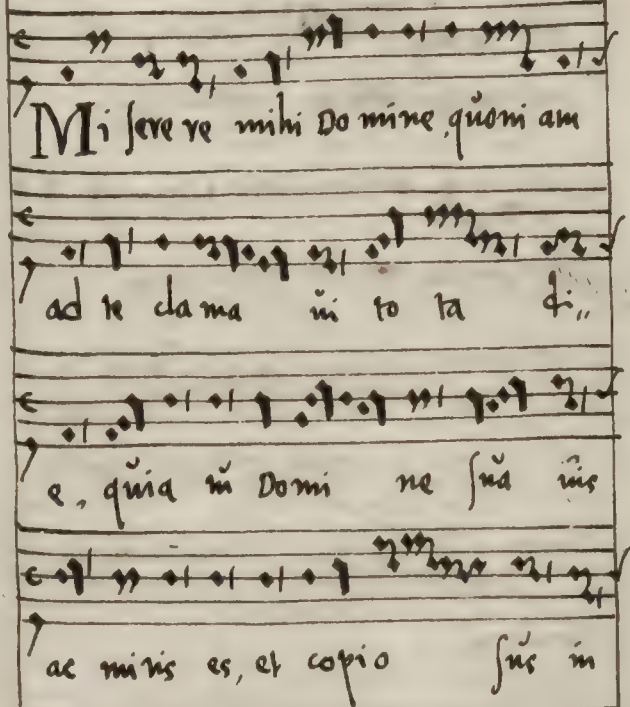 Mi sere re mihi Do mine, quoni am
ad te clama ui to ta di,,
e, quia tu Domi ne sua uis
ac mitis es, et copio sus in